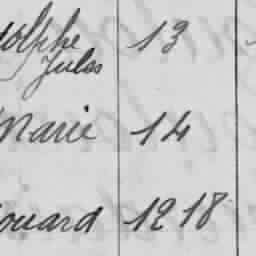 olphe 13
Jules
Marie 14
ouard 12 18